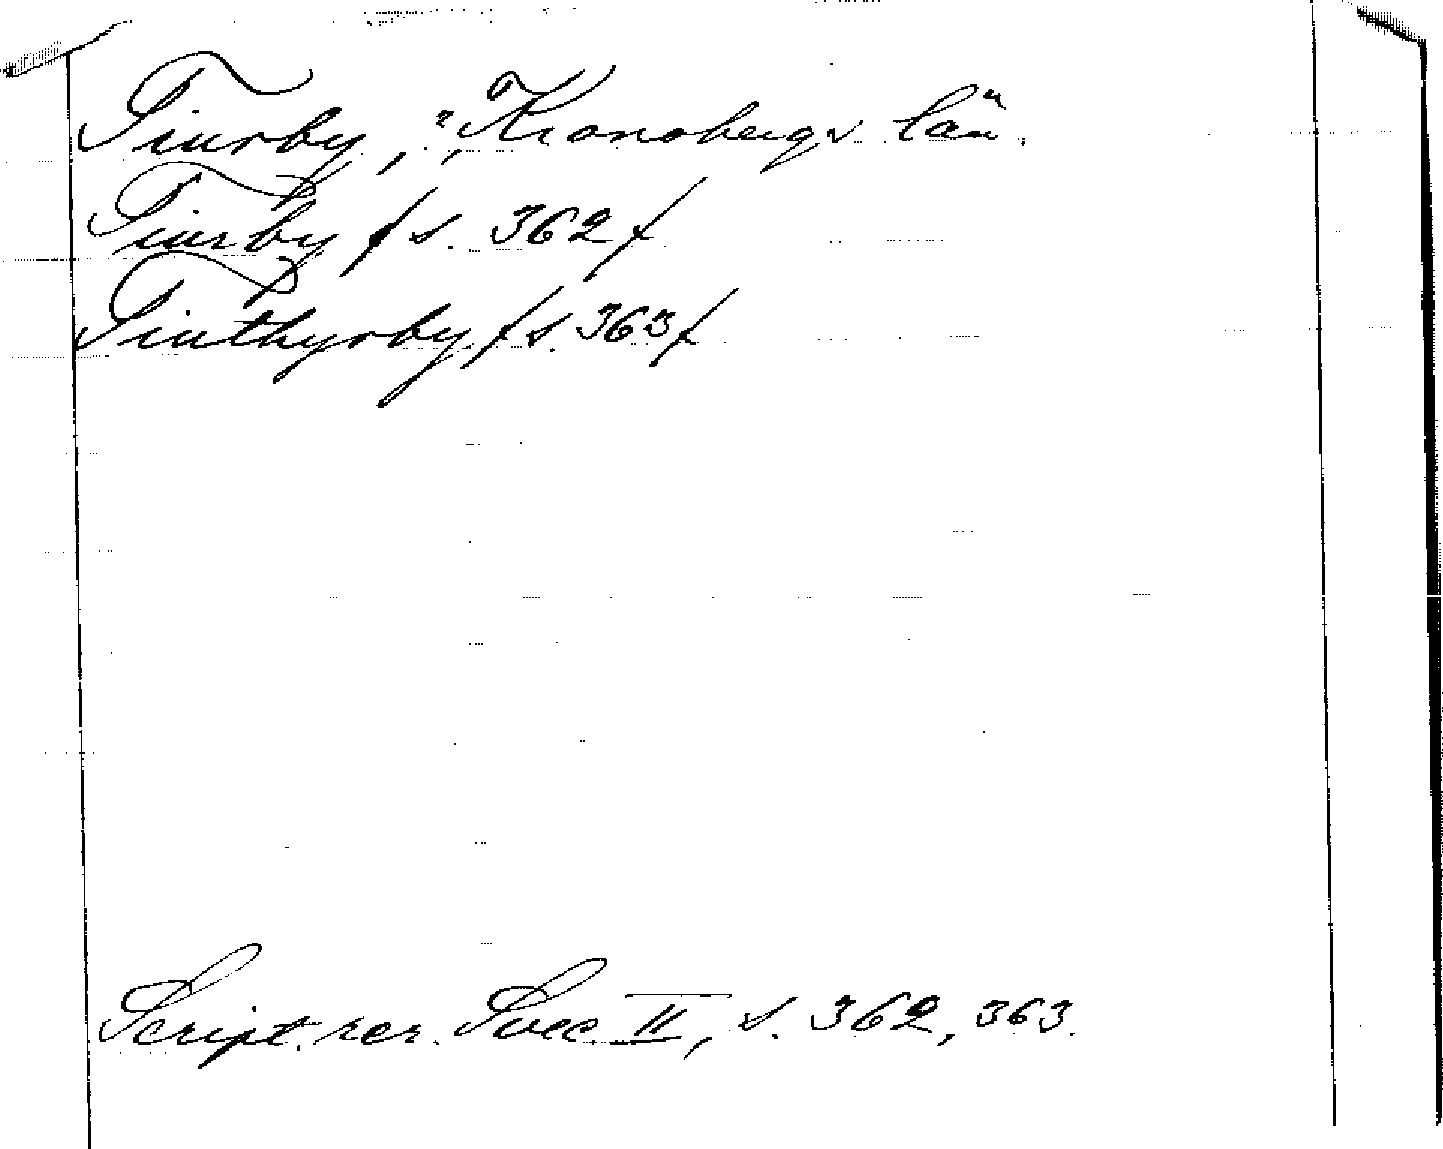 Tiurby, ", Kronobergs län.
Tiurby /s. 362/
Tiuthyrby /s. 363/
Script. rer. Svec II, s. 362, 363.